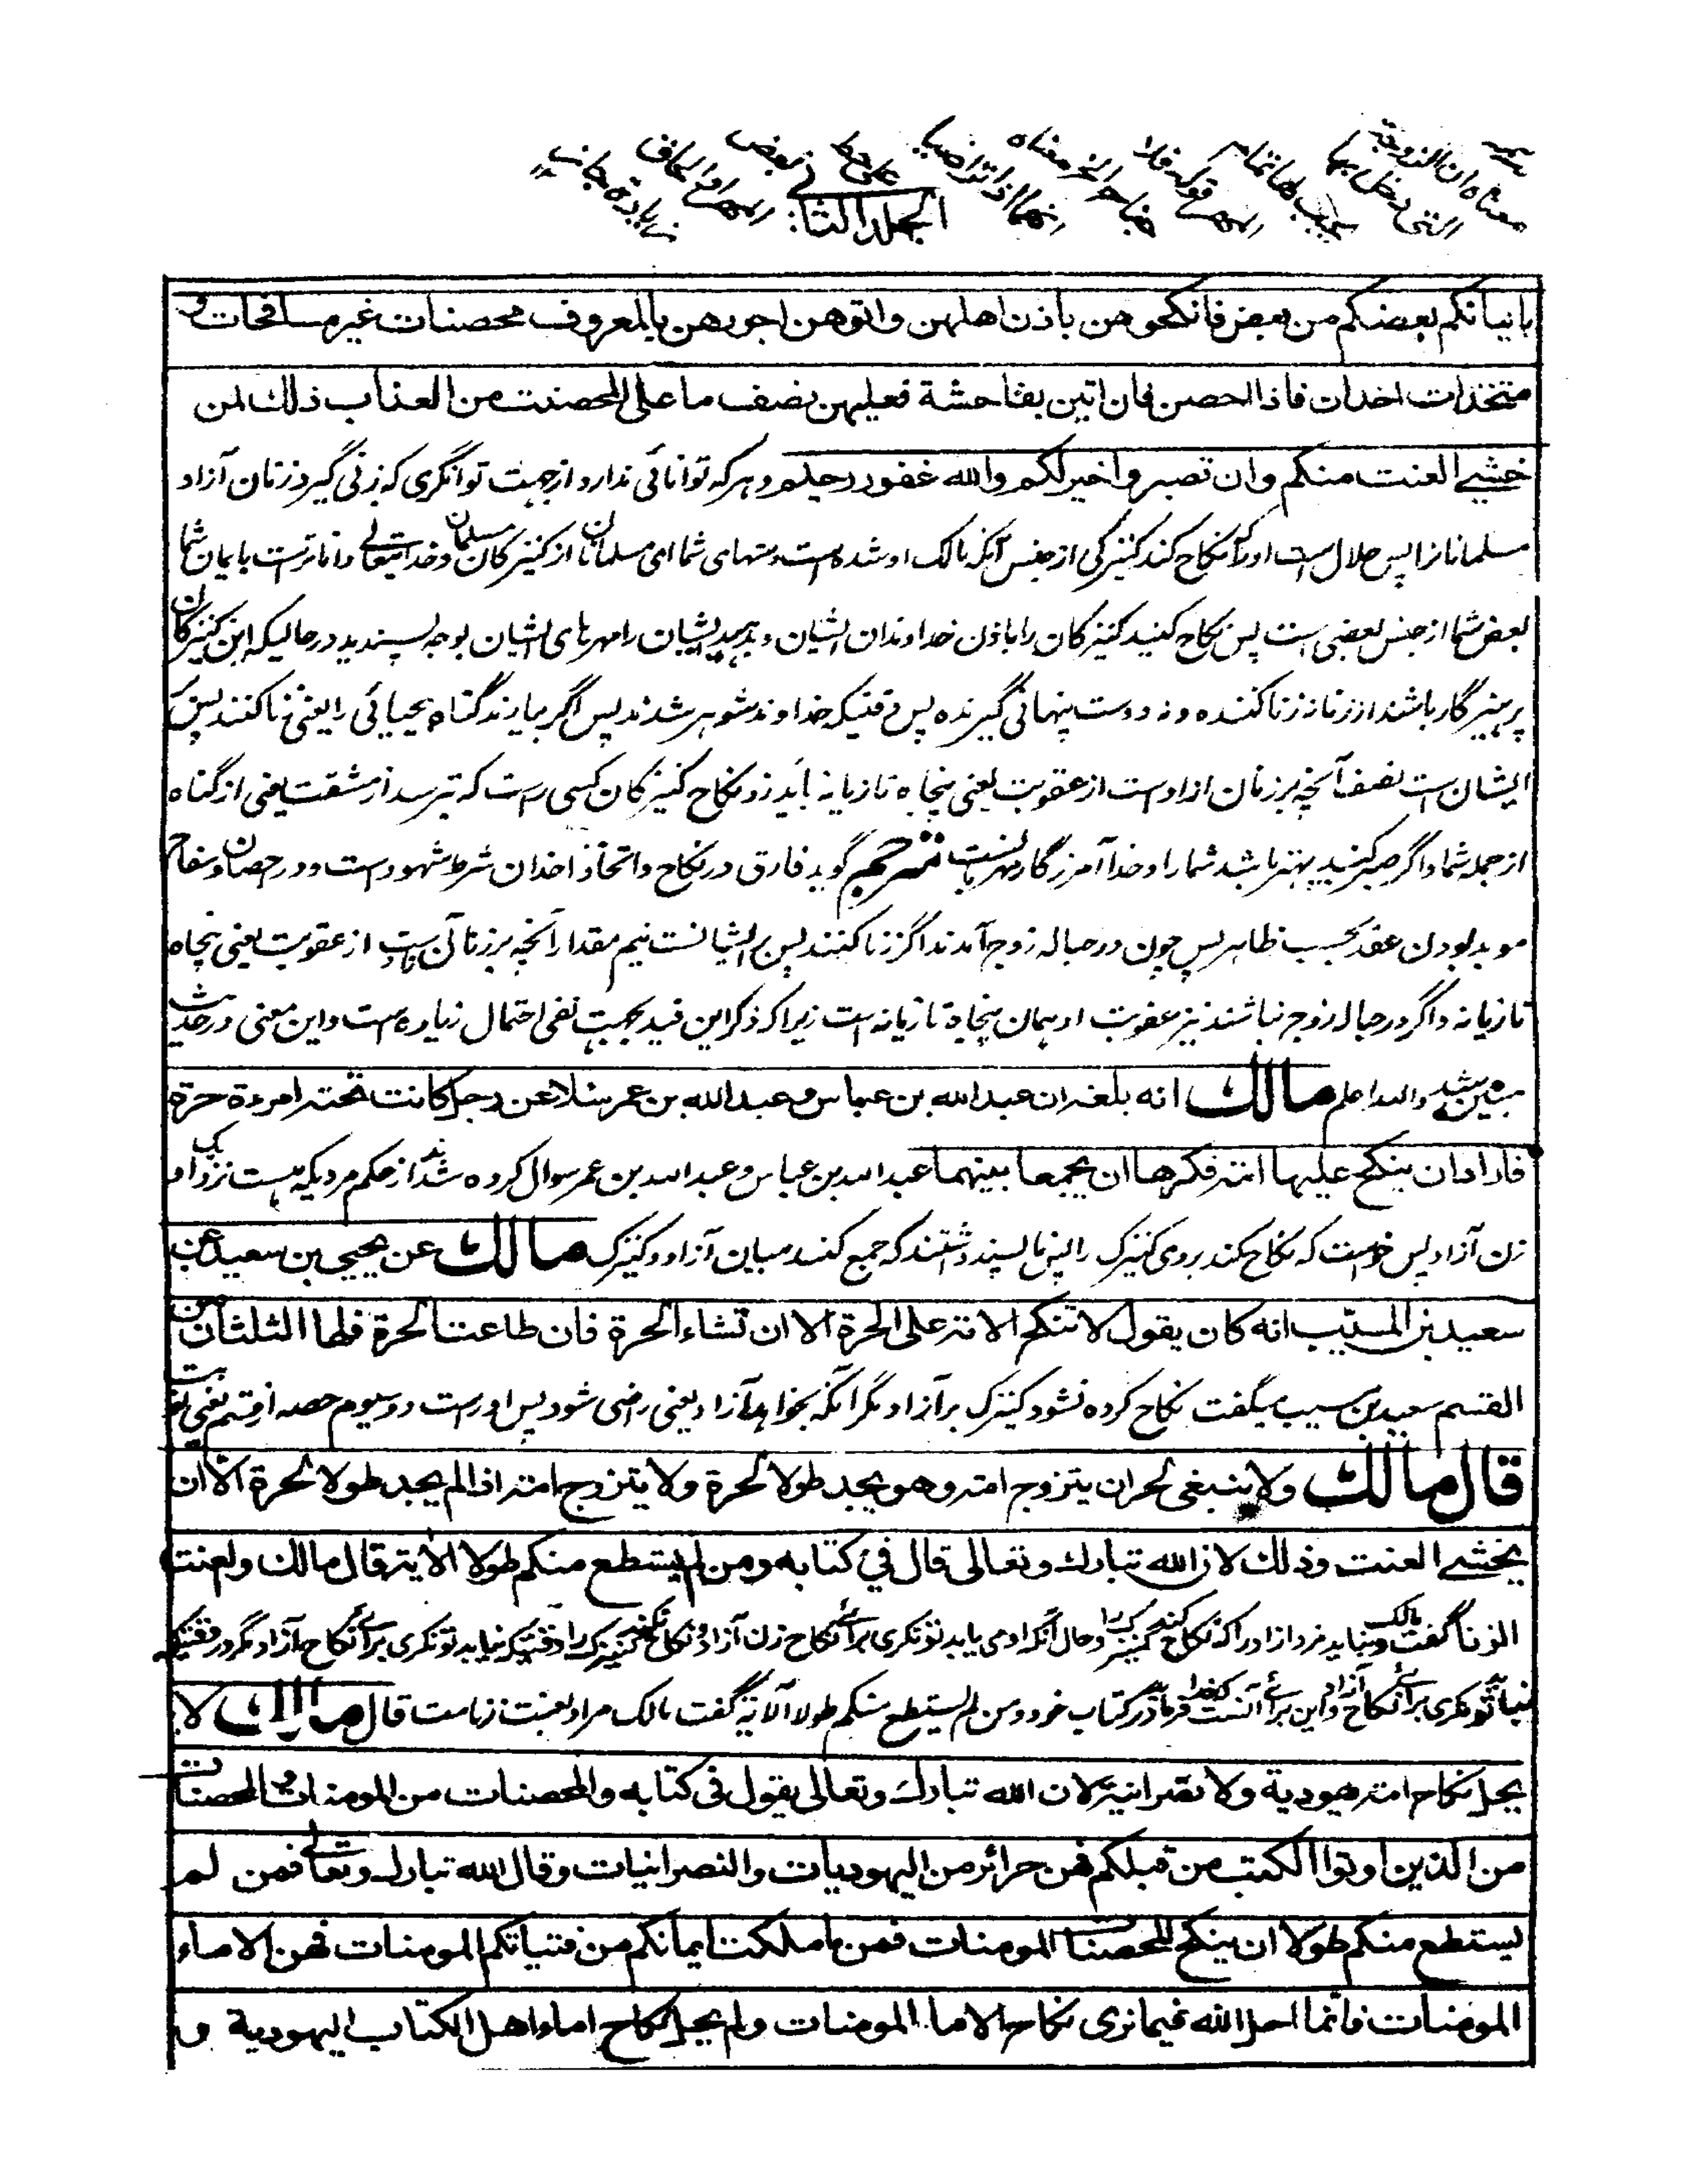 الجلد الثانی
بایمانکم بعضکم من بعض فانکحوهن باذن اهلهن واتوهن اجورهن بالمعروف محصنات غیر مسافحات و
متخذات اخدان فاذا احصن فان اتین بفاحشة فعلیهن نصف ما علی المحصنت من العذاب ذلك لمن
خشی العنت منکم وان تصبروا خیر لکم والله غفور رحیم وهر که توانائی ندارد از جهت توانگری که بزنی گیرد زنان آزاد
مسلمانانرا پس حلال است اورا که نکاح کند کنیزکی از جنس آنکه مالک او شده است دستهای شما ای مسلمانان از کنیزکان مسلمان وخدایتعالی داناترست بایمان شما
بعض شما از جنس بعضی است پس نکاح کنید کنیزکان را باذن خداوندان ایشان وبدهید ایشان را مهرهای ایشان بوجه پسندیده در حالیکه این کنیزکان
پرهیزگار باشند از زنا نه زنا کننده ونه دوست پنهانی گیرنده پس وقتیکه خداوند شوهر شدند پس اگر بیارند گناه بیحیائی را یعنی زنا کنند پس بر
ایشان است نصف آنچه بر زنان ازاد است از عقوبت یعنی پنجاه تازیانه باید زد نکاح کنیزکان کسی راست که بترسد از مشقت یعنی از گناه
از جمله شما واگر صبر کنید بهتر باشد شما را وخدا آمرزگار مهربانست مترجم گوید فارق در نکاح واتخاذ اخدان شرط شهود است ودر احصان وسفاح
موبد بودن عقد بحسب ظاهر پس چون در حباله زوج آمدند اگر زنا کنند پس بر ایشانست نیم مقدار آنچه بر زنان آزاد است از عقوبت یعنی پنجاه
تازیانه واگر در حباله زوج نباشند نیز عقوبت او همان پنجاه تازیانه است زیرا که ذکر این قید بجهت نفی احتمال زیاده است واین معنی در حدیث
مبین شد والله اعلم مالك انه بلغه ان عبد الله بن عباس وعبد الله بن عمر سئلا عن رجل کانت تحته امرءة حرة
فاراد ان ینکح علیها امة فکرها ان یجمعا بینهما عبد الله بن عباس وعبد الله بن عمر سوال کرده شدند از حکم مردیکه هست نزد او یک
زن آزاد پس خواست که نکاح کند بروی کنیزک را پس ناپسند داشتند که جمع کنند میان آزاد وکنیزک مالك عن یحیی بن سعید عن
سعید بن المسیب انه کان یقول لا تنکح الامة علی الحرة الا ان تشاء الحرة فان طاعت الحرة فلها الثلثان من
القسم سعید بن مسیب میگفت نکاح کرده نشود کنیزک بر آزاد مگر آنکه بخواهد آزاد یعنی راضی شود پس اوراست دو سیوم حصه از قسم یعنی
قال مالك ولا ینبغی لحر ان یتزوج امة وهو یجد طولا لحرة ولا یتزوج امة اذا لم یجد طولا لحرة الا ان
یخشی العنت وذلك لان الله تبارك وتعالی قال فی کتابه ومن لم یستطع منکم طولا الایة قال مالك والعنت
الزنا گفت مالک ونباید مرد ازاد را که نکاح کند کنیزک را وحال آنکه او می یابد تونگری برائے نکاح زن آزاد ونکاح نکند کنیزک را وقتیکه نیابد تونگری برائے نکاح آزاد مگر در وقتیکه
نیابد تونگری برائے نکاح آزاد واین برائے آنست که خدا فرمود در کتاب خود ومن لم یستطع منکم طولا الآیة گفت مالک مراد بعنت زناست قال مالك لا
یحل نکاح امة یهودیة ولا نصرانیة لان الله تبارك وتعالی یقول فی کتابه والمحصنات من المومنات والمحصنات
من الذین اوتوا الکتب من قبلکم فهن حرائر من الیهودیات والنصرانیات وقال الله تبارك وتعالی فمن لم
یستطع منکم طولا ان ینکح المحصنات المومنات فمن ما ملکت ایمانکم من فتیاتکم المومنات فهن الاماء
المومنات فانما احل الله فیما نری نکاح الاماء المومنات ولم یحل نکاح اماء اهل الکتاب الیهودیة و